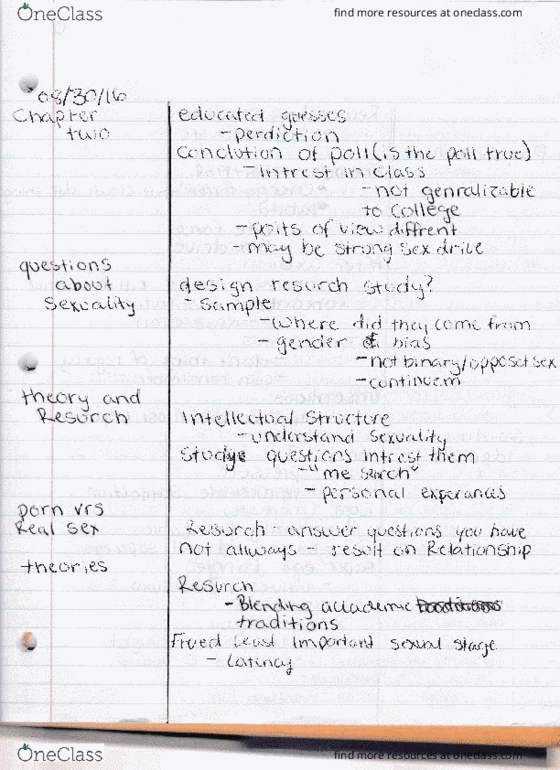 OneClass
find more resources at oneclass.com
08/30/16
Chapter
two
educated guesses
- perdiction
Conclution of poll (is the poll true)
- Intrest in class
- not genralizable
to College
- poits of view diffrent
- may be strong sex drive
questions
about
Sexuality
design resurch study?
- sample
- where did they come from
- gender & bias
- not binary/opposet sex
- continuem
theory and
Resurch
Intellectual Structure
- understand sexuality
Studye questions intrest them
- "me surch"
- personal experances
porn vrs
Real sex
Resurch - answer questions you have
not allways - result on Relationship
theories
Resurch
- Blending accademic
traditions
Frued Least Important sexual stage
- Latincy
OneClass
find more resources at oneclass.com